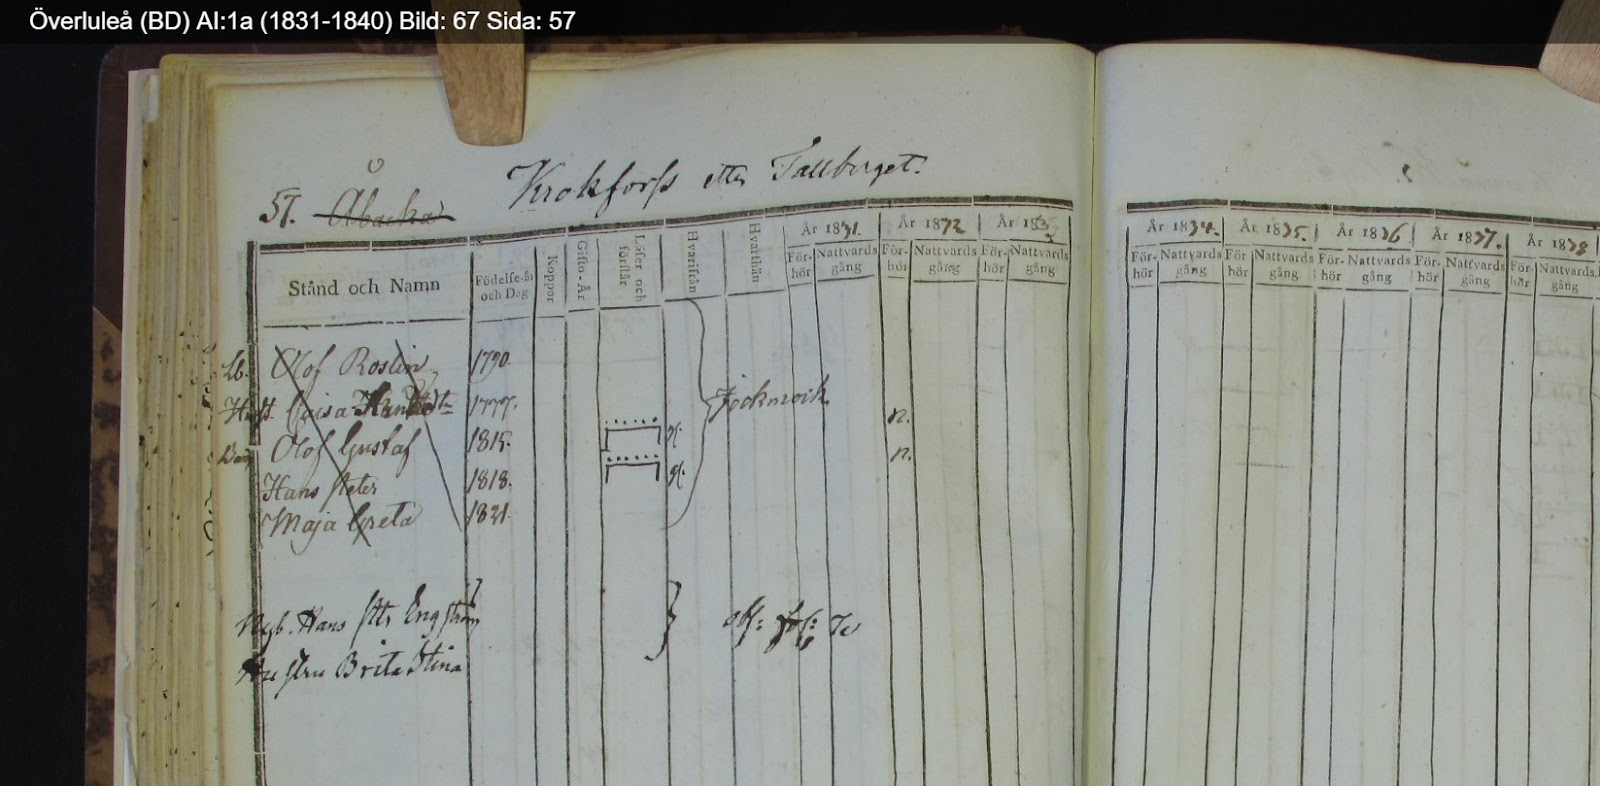 Överluleå (BD) AI:1a (1831-1840) Bild: 67 Sida: 57
57. Åbacka Krokforss eller Tallberget.
År 1831. År 1832 År 1833 År 1834. År 1835. År 1836 År 1837. År 1838
Stånd och Namn Födelse-år och Dag Koppor Gifto-År Läser och förstår Hvarifrån Hvarthän För-hör Nattvards gång För-hör Nattvards gång För-hör Nattvards gång För-hör Nattvards gång För hör Nattvards gång För-hör Nattvards gång För-hör Nattvards gång För-hör Nattvards gång
Olof Roslin 1790.
Hust. Cajsa 1777. Jockmoik
Olof Gustaf 1815. n.
Hans Peter 1818. n.
Maja Greta 1821.
Nyb. Hans Pttr Engström
Hustru Brita Stina